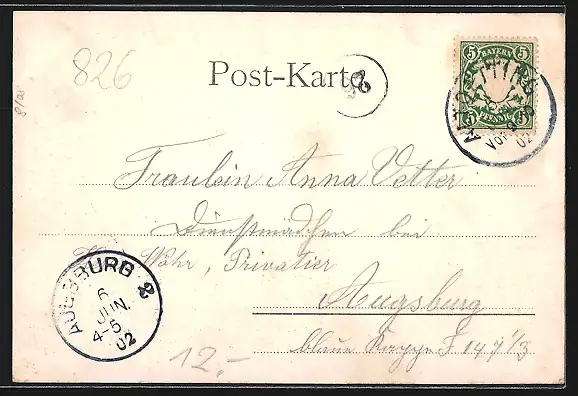 826
Post-Karte
2
5 BAYERN 5
PFENNIG
5 5
02
Fräulein Anna Vetter
Dienstmädchen bei
Wöhr, Privatier
Augsburg
AUGSBURG 2
6
JUN.
4-5
02
12.-